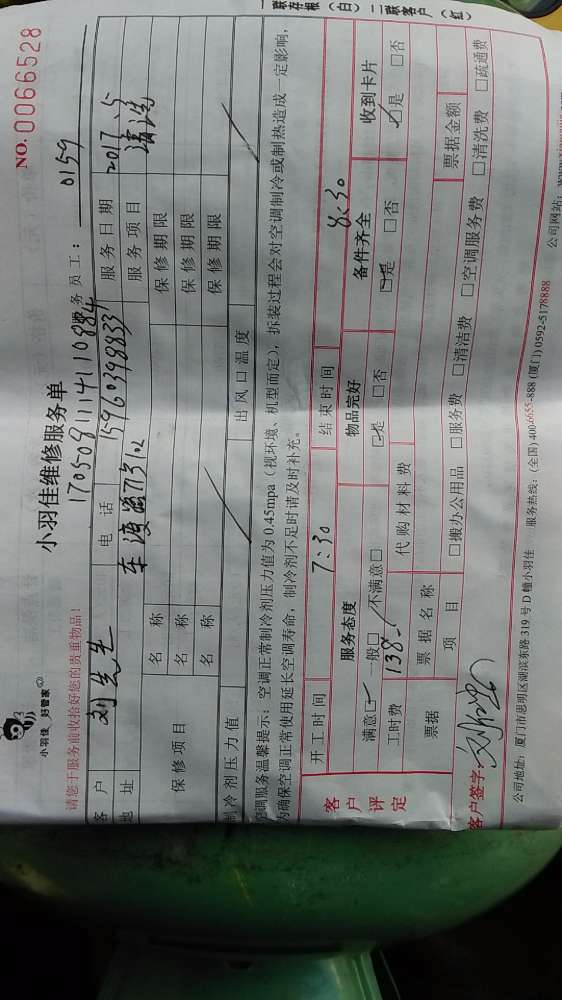 一联存根(白) 二联客户(红)
小羽佳 好管家
小羽佳维修服务单
NO. 0066528
17050811114110884
请您于服务前收拾好您的贵重物品!
服务员工: 0159
客户 刘先生 电话 15960398833 服务日期 2017.5
地址 服务项目 清洗
保修项目 名称 保修期限
名称 保修期限
名称 保修期限
制冷剂压力值 出风口温度
空调服务温馨提示: 空调正常制冷剂压力值为0.45mpa(视环境、机型而定), 拆装过程会对空调制冷或制热造成一定影响,
为确保空调正常使用延长空调寿命, 制冷剂不足时请及时补充。
客户评定
开工时间 7:30 结束时间 8:30
服务态度 物品完好 备件齐全 收到卡片
满意☑ 一般□ 不满意□ ☑是 □否 ☑是 □否 ☑是 □否
工时费 138 代购材料费
票据 票据名称 票据金额
项目 □搬办公用品 □服务费 □清洁费 □空调服务费 □清洗费 □疏通费
客户签字:
公司地址: 厦门市思明区湖滨东路319号D幢小羽佳 服务热线: (全国) 400-6655-888 (厦门) 0592-5178888 公司网站: